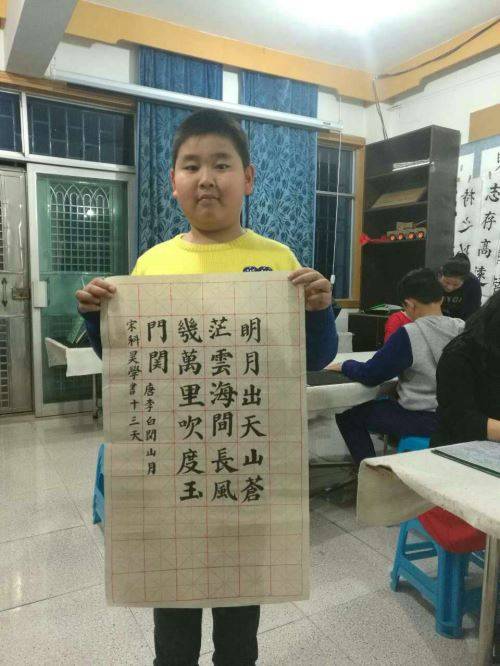 明月出天山蒼
茫雲海間長風
幾萬里吹度玉
門関
唐李白関山月
宋科昊學書十三天
志存高遠